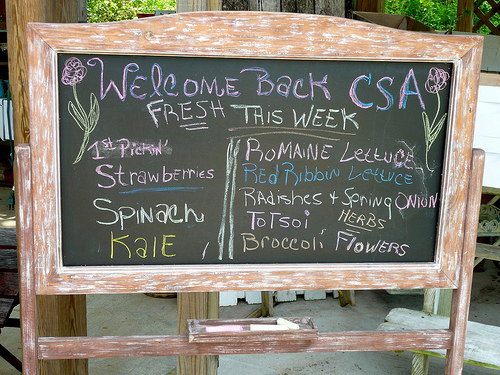 Welcome Back CSA
FRESH THIS WEEK
1st Pickin'
Strawberries
Spinach
Kale
Romaine Lettuce
Red Ribbin Lettuce
Radishes + Spring Onion
ToTsoi
Herbs
Broccoli
Flowers